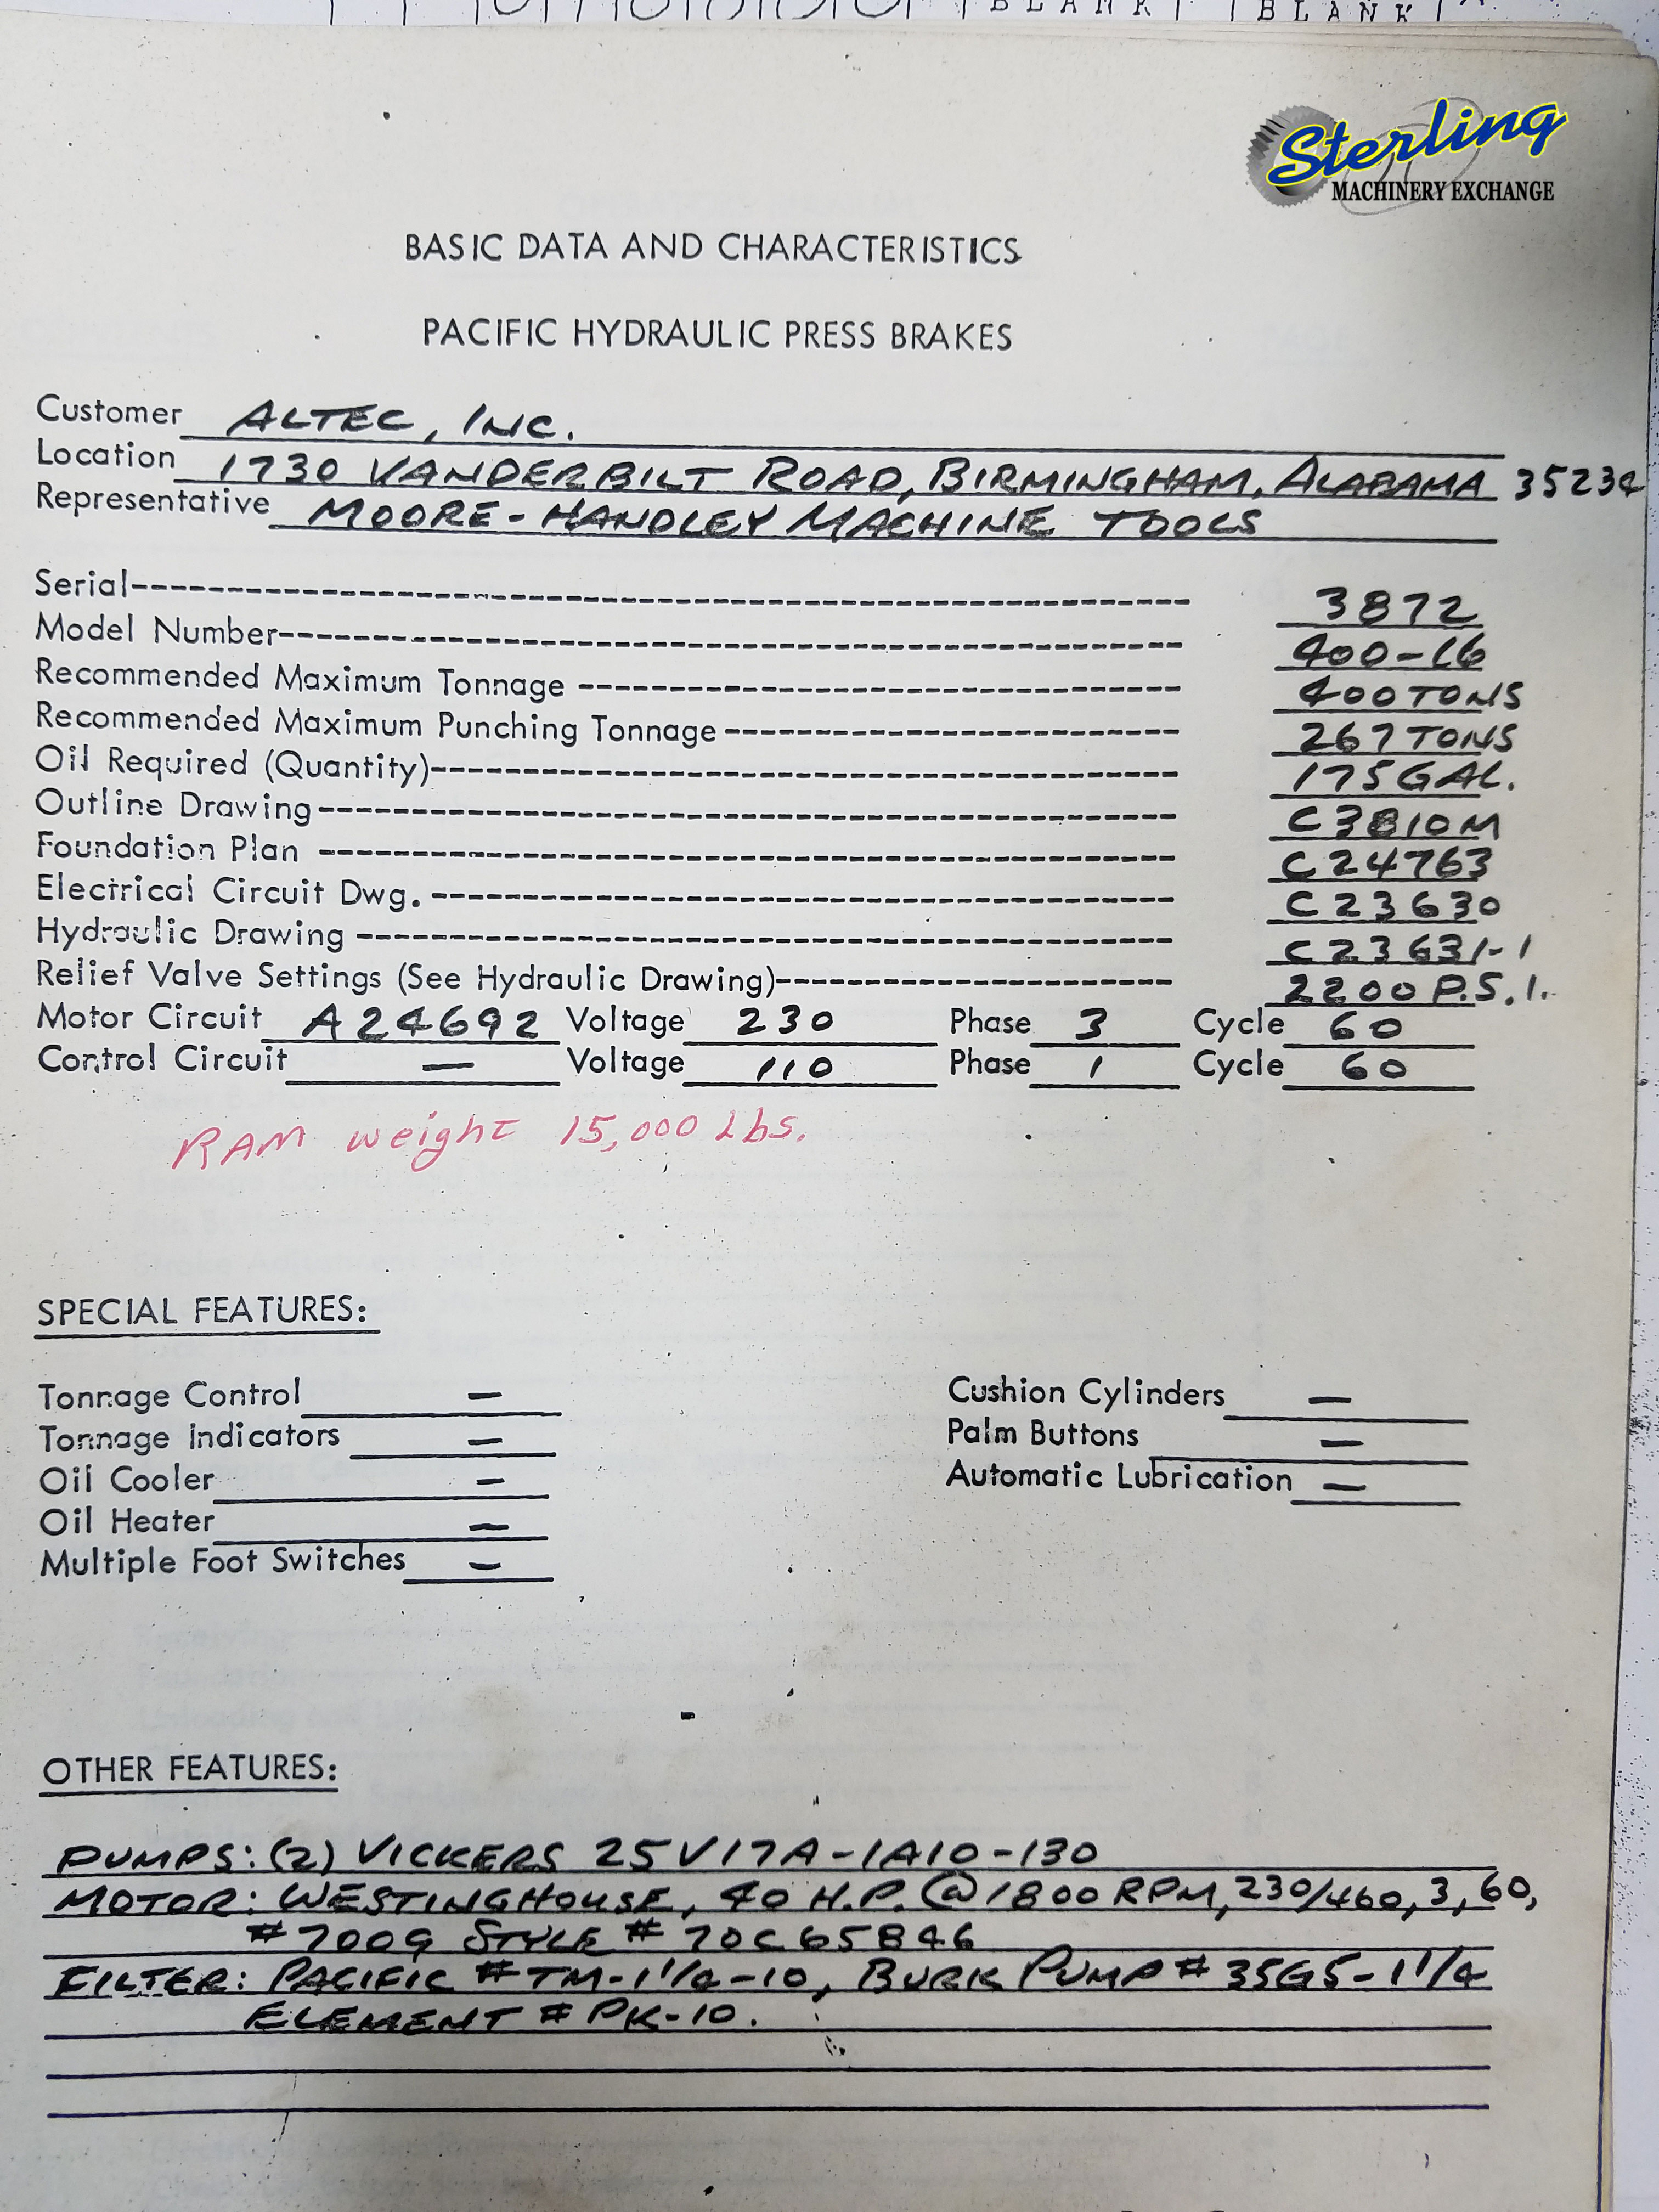 BLANK BLANK
Sterling
MACHINERY EXCHANGE
BASIC DATA AND CHARACTERISTICS
PACIFIC HYDRAULIC PRESS BRAKES
Customer ALTEC, INC.
Location 1730 VANDERBILT ROAD, BIRMINGHAM, ALABAMA 35234
Representative MOORE-HANDLEY MACHINE TOOLS
Serial 3872
Model Number 400-16
Recommended Maximum Tonnage 400 TONS
Recommended Maximum Punching Tonnage 267 TONS
Oil Required (Quantity) 175 GAL.
Outline Drawing C3810M
Foundation Plan C24763
Electrical Circuit Dwg. C23630
Hydraulic Drawing C23631-1
Relief Valve Settings (See Hydraulic Drawing) 2200 P.S.I.
Motor Circuit A24692 Voltage 230 Phase 3 Cycle 60
Control Circuit — Voltage 110 Phase 1 Cycle 60
RAM weight 15,000 Lbs.
SPECIAL FEATURES:
Tonnage Control — Cushion Cylinders —
Tonnage Indicators — Palm Buttons —
Oil Cooler — Automatic Lubrication —
Oil Heater —
Multiple Foot Switches —
OTHER FEATURES:
PUMPS: (2) VICKERS 25V17A-1A10-130
MOTOR: WESTINGHOUSE, 40 H.P. @ 1800 RPM, 230/460, 3, 60,
#7009 STYLE # 70C65846
FILTER: PACIFIC #TM-1 1/4-10, BURK PUMP # 35G5-1 1/4
ELEMENT # PK-10.